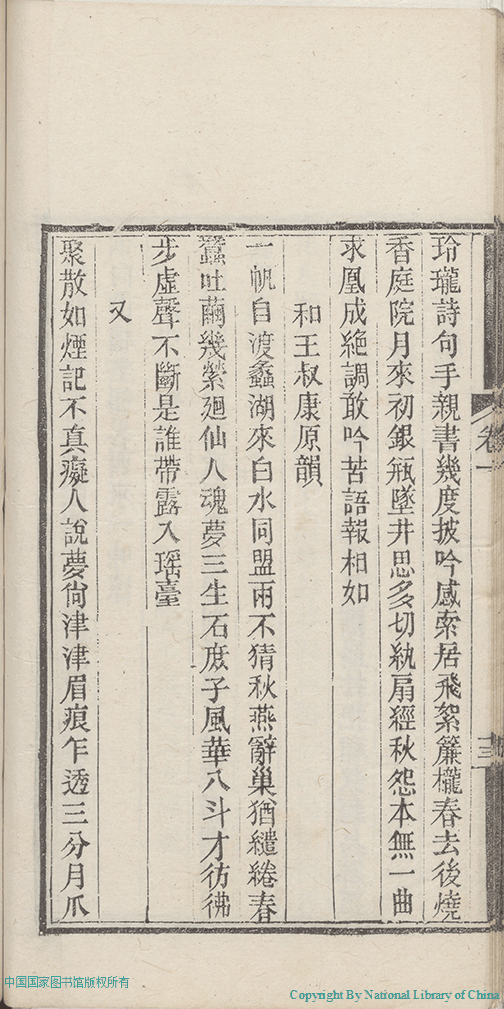 玲瓏詩句手親書幾度披吟感索居飛絮簾櫳春去後燒
香庭院月來初銀瓶墜井思多切紈扇經秋怨本無一曲
求凰成絕調敢吟苦語報相如
和王叔康原韻
一帆自渡蠡湖來白水同盟兩不猜秋燕辭巢猶繾綣春
蠶吐繭幾縈廻仙人魂夢三生石庶子風華八斗才彷彿
步虛聲不斷是誰帶露入瑤臺
又
聚散如煙記不真癡人說夢尙津津眉痕乍透三分月爪
卷一
中国国家图书馆版权所有
Copyright By National Library of China